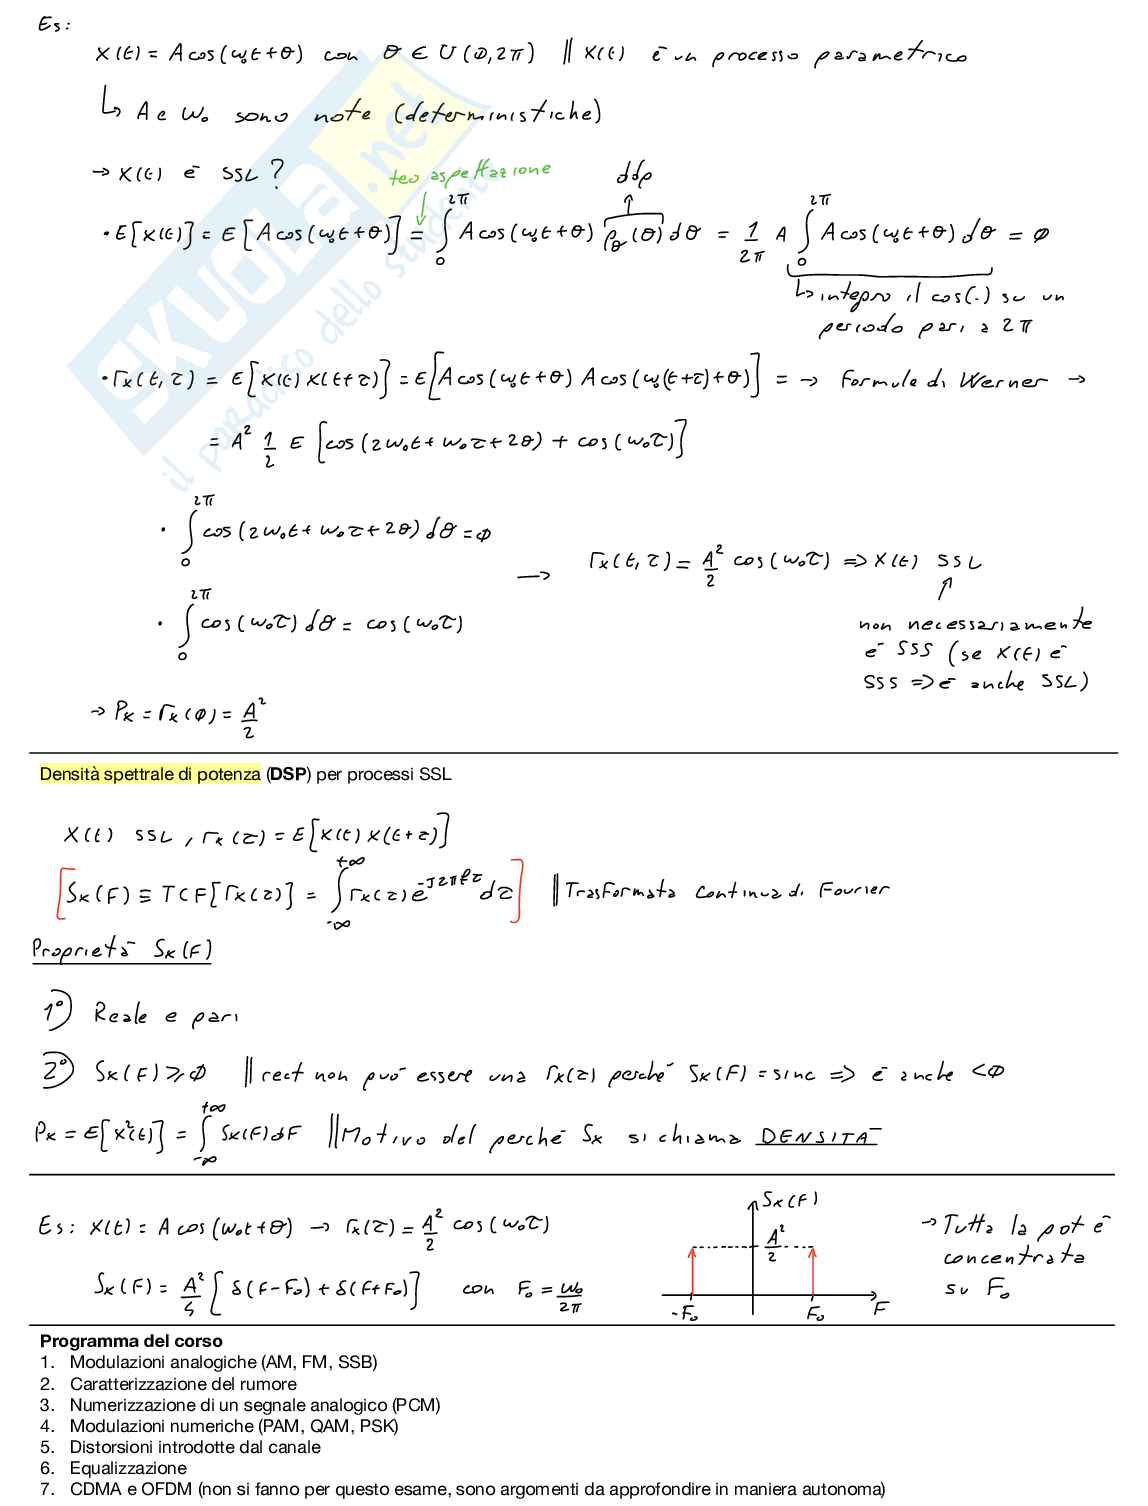 Es:
X(t) = A cos(ω₀t+θ) con θ ∈ U(0,2π) || X(t) è un processo parametrico
↳ A e ω₀ sono note (deterministiche)
→ X(t) è SSL?
teo aspettazione
ddp
• E[X(t)] = E[A cos(ω₀t+θ)] = ∫₀^2π A cos(ω₀t+θ) p_θ(θ) dθ = 1/2π A ∫₀^2π A cos(ω₀t+θ) dθ = ϕ
↳ integro il cos(.) su un
periodo pari a 2π
• rx(t,τ) = E[X(t) X(t+τ)] = E[A cos(ω₀t+θ) A cos(ω₀(t+τ)+θ)] = → Formule di Werner →
= A² 1/2 E [cos(2ω₀t+ω₀τ+2θ) + cos(ω₀τ)]
• ∫₀^2π cos(2ω₀t+ω₀τ+2θ) dθ = ϕ
→ rx(t,τ) = A²/2 cos(ω₀τ) ⇒ X(t) SSL
• ∫₀^2π cos(ω₀τ) dθ = cos(ω₀τ)
non necessariamente
è SSS (se X(t) è
SSS ⇒ è anche SSL)
→ Px = rx(ϕ) = A²/2
Densità spettrale di potenza (DSP) per processi SSL
X(t) SSL, rx(τ) = E[X(t) X(t+τ)]
[Sx(F) ≡ TCF[rx(τ)] = ∫₋∞^+∞ rx(τ) e^-J2πfτ dτ] || Trasformata Continua di Fourier
Proprietà Sx(F)
1°) Reale e pari
2°) Sx(F) ⩾ ϕ || rect non può essere una rx(τ) perché Sx(F) = sinc ⇒ è anche < ϕ
Px = E[X²(t)] = ∫₋∞^+∞ Sx(F) dF || Motivo del perché Sx si chiama DENSITÀ
Es: X(t) = A cos(ω₀t+θ) → rx(τ) = A²/2 cos(ω₀τ)
Sx(F) = A²/4 [δ(F-F₀) + δ(F+F₀)] con F₀ = ω₀/2π
Sx(F)
A²/2
-F₀ F₀ F
→ Tutta la pot è
concentrata
su F₀
Programma del corso
1. Modulazioni analogiche (AM, FM, SSB)
2. Caratterizzazione del rumore
3. Numerizzazione di un segnale analogico (PCM)
4. Modulazioni numeriche (PAM, QAM, PSK)
5. Distorsioni introdotte dal canale
6. Equalizzazione
7. CDMA e OFDM (non si fanno per questo esame, sono argomenti da approfondire in maniera autonoma)
SKUOLA.net
il paradiso dello studente